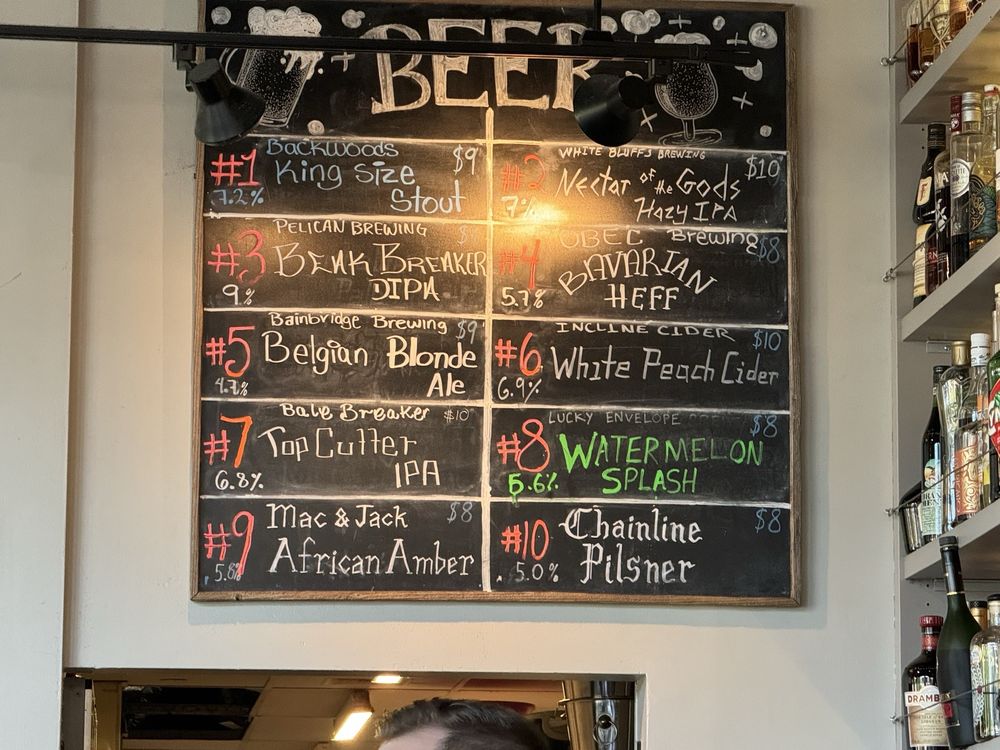 BEER
#1 Backwoods $9
King Size
7.2% Stout
#2 WHITE BLUFFS BREWING $10
Nectar of the Gods
7% Hazy IPA
#3 PELICAN BREWING
BEAK BREAKER
9% DIPA
#4 Brewing $8
BAVARIAN
5.7% HEFF
#5 Bainbridge Brewing $9
Belgian Blonde
4.7% Ale
#6 INCLINE CIDER $10
White Peach Cider
6.9%
#7 Bale Breaker $10
Top Cutter
6.8% IPA
#8 LUCKY ENVELOPE $8
WATERMELON
5.6% SPLASH
#9 Mac & Jack $8
African Amber
5.8%
#10 Chainline $8
5.0% Pilsner
DRAMB